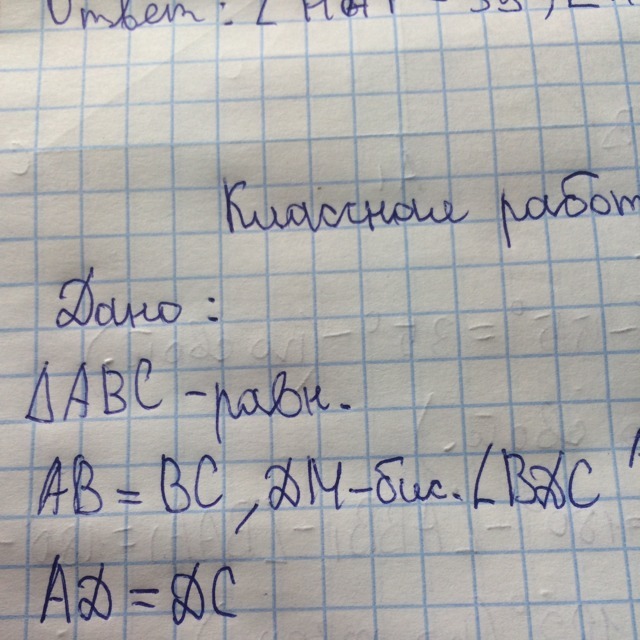 Ответ: ∠
Классная работ
Дано:
ΔABC - равн.
AB = BC, DM - бис. ∠BDC
AD = DC